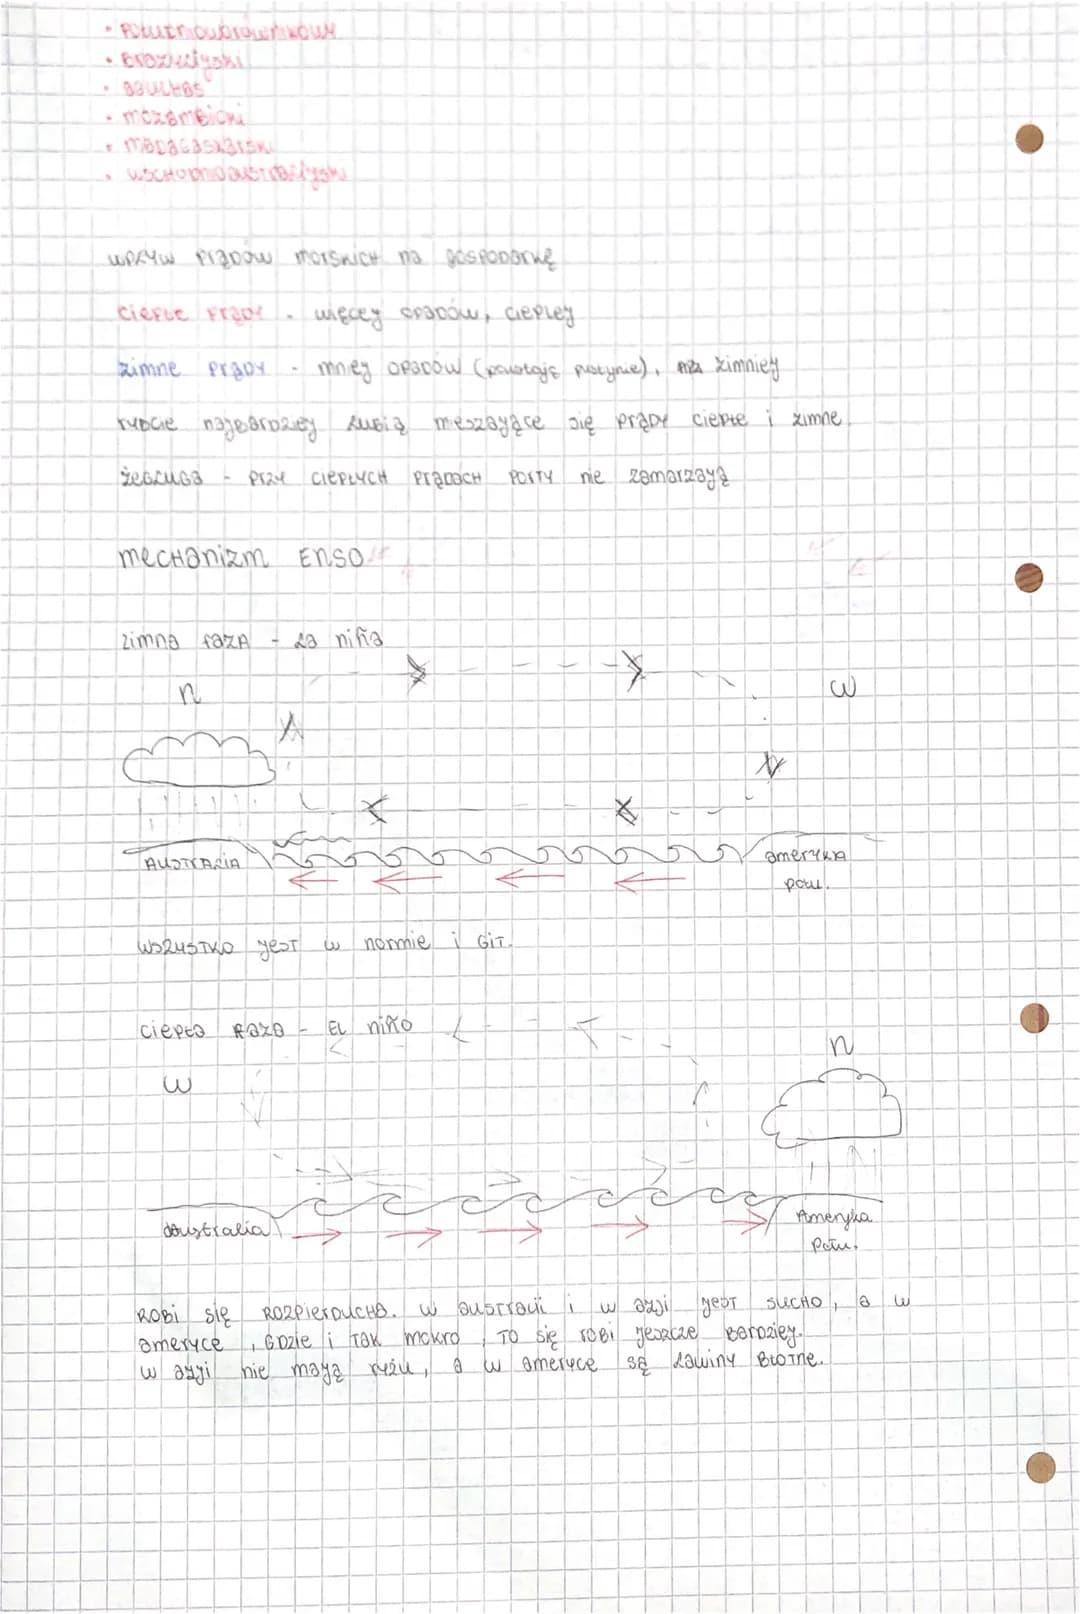 • POŁUDNIOWORÓWNIKOWY
• Brazylijski
• agulhas
• mozambicki
• madagaskarski
• wschodnioaustralijski
wpływ prądów morskich na gospodarkę
ciepłe prądy - więcey opadów, ciepley
zimne prądy - mniey opadów (powstają pustynie), zimniey
rybcie nayBardziey lubią mieszayące się prądy ciepłe i zimne.
żegluga - przy ciepłych prądach porty nie zamarzayą
mechanizm ENSO
zimna faza - la niña
n
w
AUSTRALIA
ameryka
połu.
WSZYSTKO yest w normie i GIT.
ciepła faza - EL niño
n
w
australia
Ameryka
Połu.
ROBI się ROZPIERDUCHA. w australii i w azyi yest SUCHO, a w
ameryce, GDZIE i TAK mokro, TO się robi yeszcze Bardziey.
w azyi nie mayą ryżu, a w ameryce są lawiny BŁOTNE.